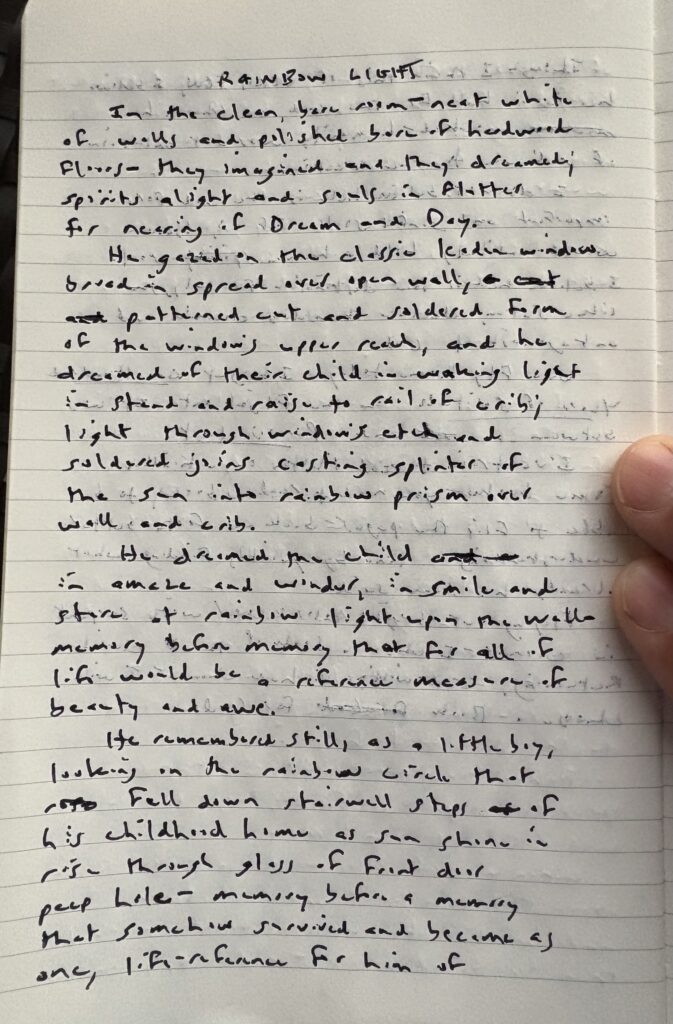 RAINBOW LIGHT
In the clean, bare room—neat white
of walls and polished bare of hardwood
floors— they imagined and they dreamed;
spirits alight and souls in flutter
for nearing of Dream and Day.
He gazed on the classic leadin window
broad in spread over open wall,
patterned cut and soldered form
of the window's upper reach, and he
dreamed of their child in waking light
in stand and raise to rail of crib;
light through window's etch and
soldered joins casting splinter of
the sun into rainbow prism over
wall and crib.
He dreamed the child
in amaze and windur, in smile and
stare at rainbow light upon the walls
memory before memory that for all of
life would be a reference measure of
beauty and awe.
He remembered still, as a little boy,
looking on the rainbow circle that
fell down stairwell steps of
his childhood home as sun shone in
rise through glass of front door
peep hole— memory before a memory
that somehow survived and became as
one, life-reference for him of